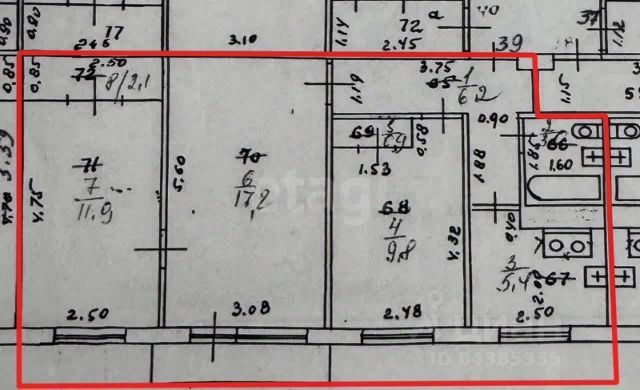 77
72
а
40
37
2.46
3.10
2.45
39
1.14
1.12
0.85
0.85
2.50
8/2,1
3.75
1
6.2
1.19
1.15
0.90
69
0.58
1.53
1.88
1.85
66
1.60
3.59
71
7
11.9
5.50
70
6
17,2
68
4
9,8
4.75
4.32
0.40
3
5,4
67
2.50
3.08
2.48
2.50
ID 64385335